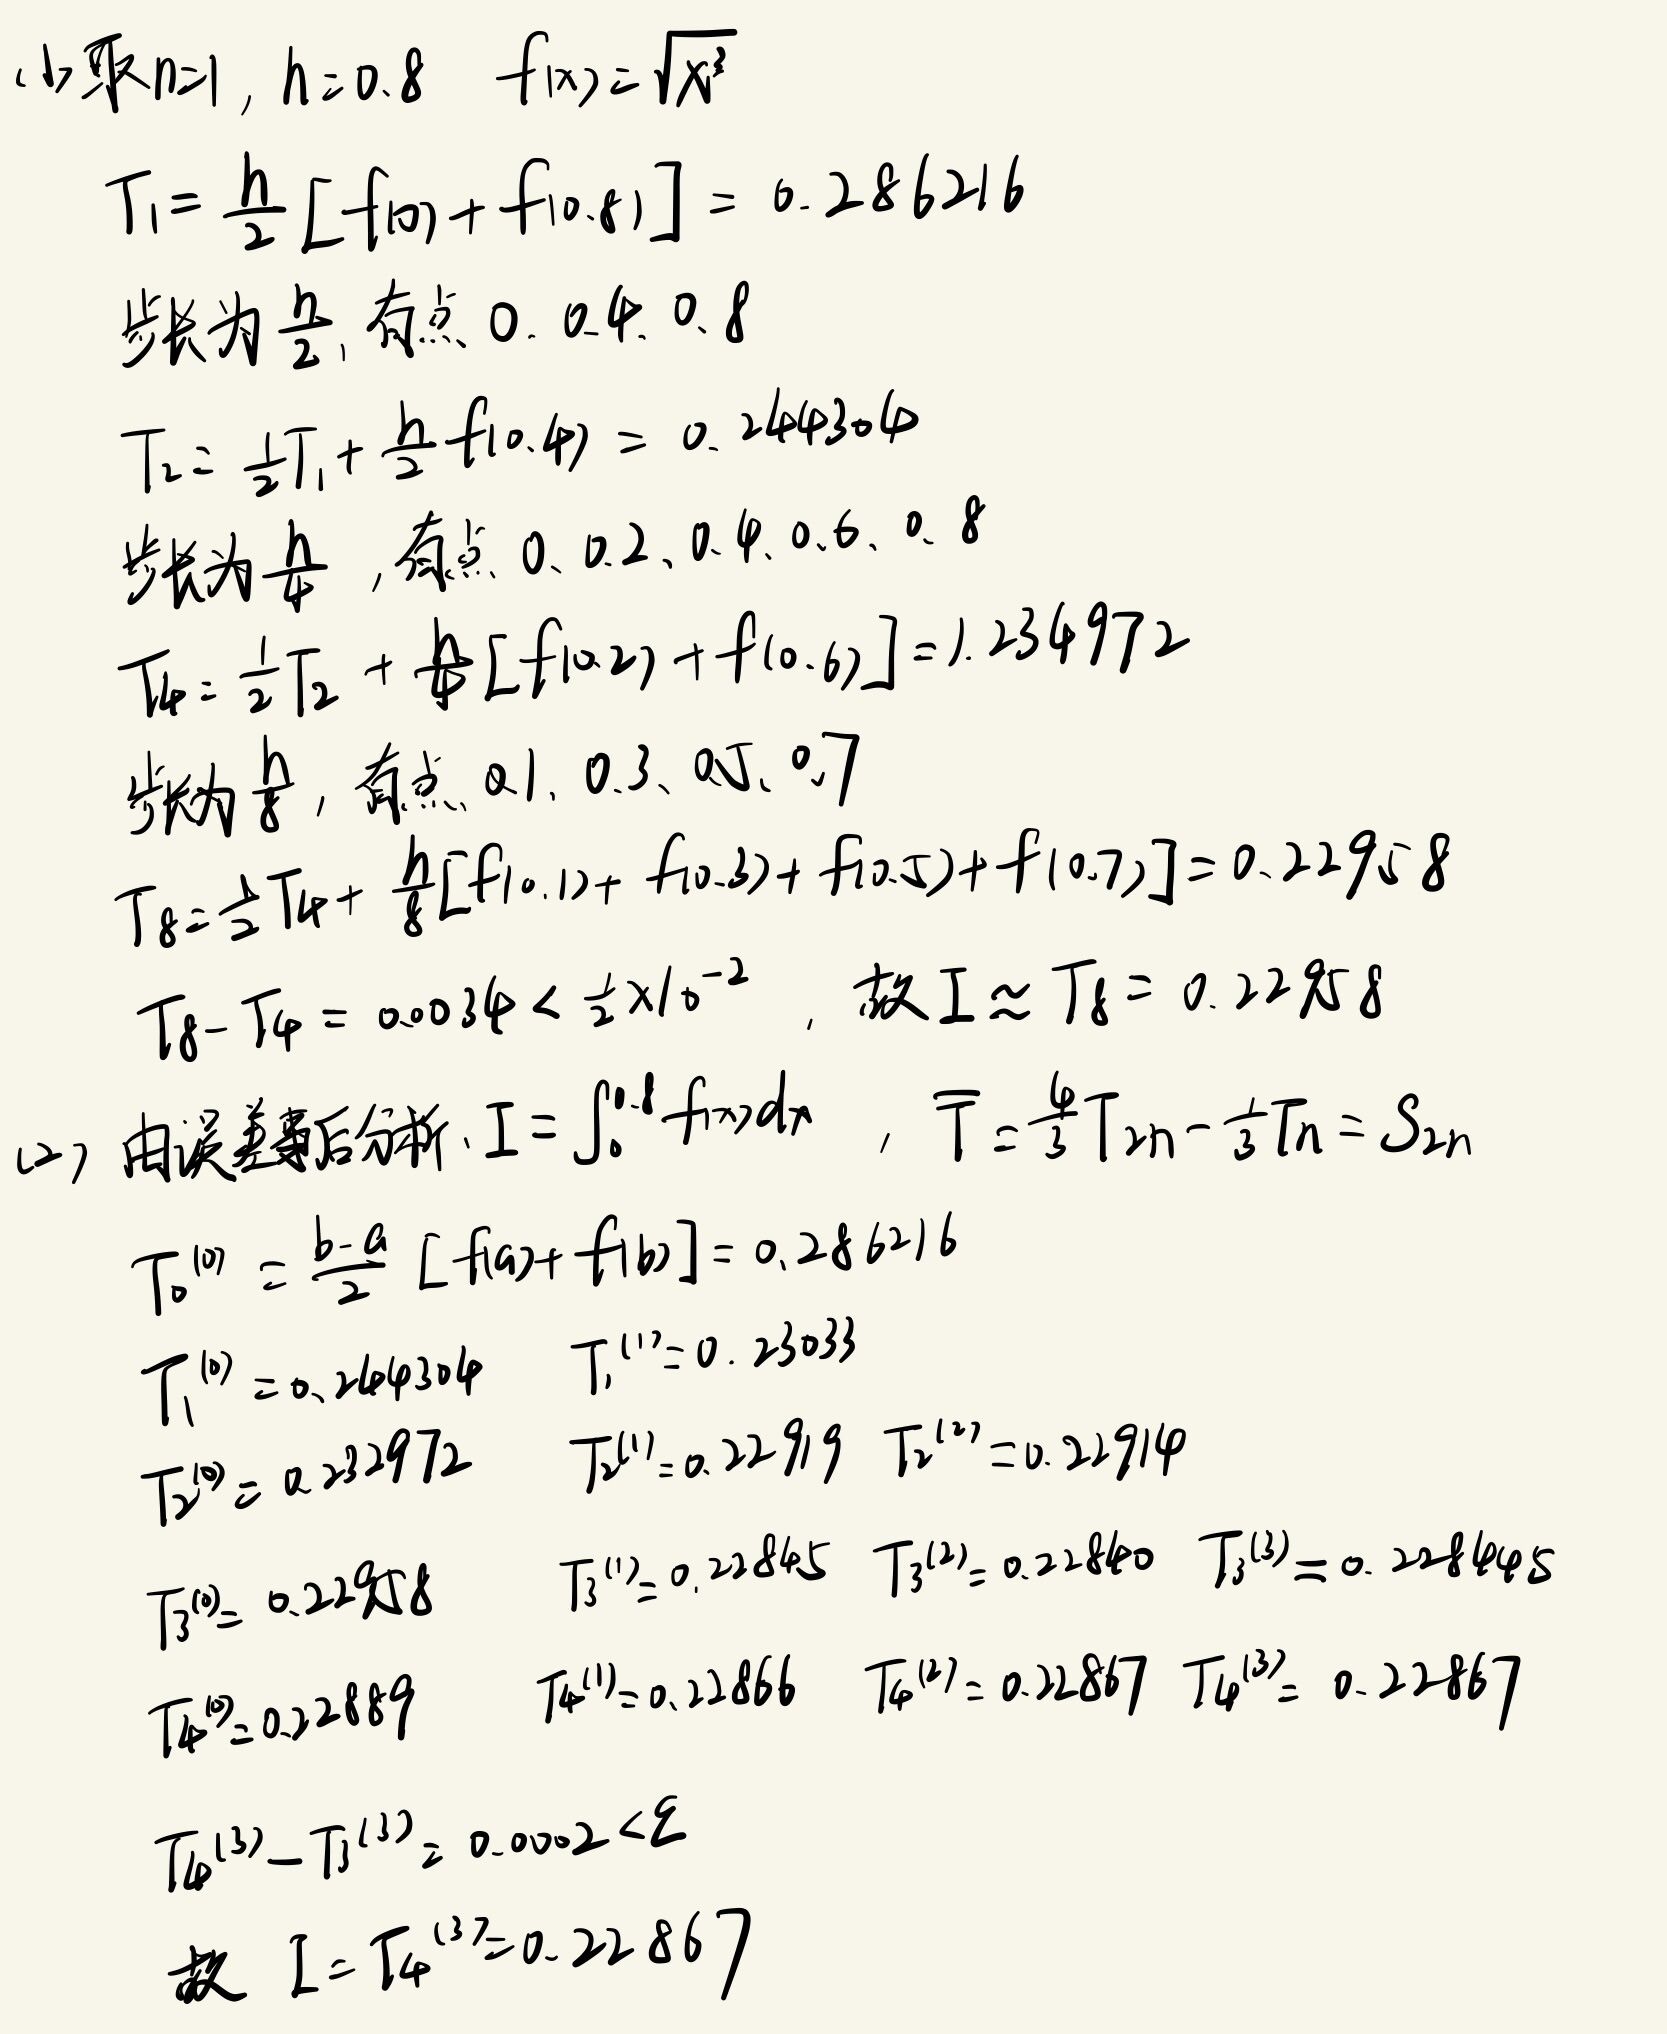 (1) 取n=1, h=0.8 f(x)=√x³
T₁=h/2[f(0)+f(0.8)]=0.286216
步长为h/2, 有点、0、0.4、0.8
T₂=1/2T₁+h/2f(0.4)=0.244304
步长为h/4, 有点、0、0.2、0.4、0.6、0.8
T₄=1/2T₂+h/4[f(0.2)+f(0.6)]=1.234972
步长为h/8, 有点、0.1、0.3、0.5、0.7
T₈=1/2T₄+h/8[f(0.1)+f(0.3)+f(0.5)+f(0.7)]=0.22958
T₈-T₄=0.0034<1/2×10⁻², 故I≈T₈=0.22958
(2) 由误差事后分析、I=∫₀^0.8 f(x)dx, T̅=4/3T₂n-1/3Tn=S₂n
T₀⁽⁰⁾=(b-a)/2[f(a)+f(b)]=0.286216
T₁⁽⁰⁾=0.244304 T₁⁽¹⁾=0.23033
T₂⁽⁰⁾=0.232972 T₂⁽¹⁾=0.22919 T₂⁽²⁾=0.22914
T₃⁽⁰⁾=0.22958 T₃⁽¹⁾=0.22845 T₃⁽²⁾=0.22840 T₃⁽³⁾=0.228445
T₄⁽⁰⁾=0.22889 T₄⁽¹⁾=0.22866 T₄⁽²⁾=0.22867 T₄⁽³⁾=0.22867
T₄⁽³⁾-T₃⁽³⁾=0.0002<ε
故 I=T₄⁽³⁾=0.22867